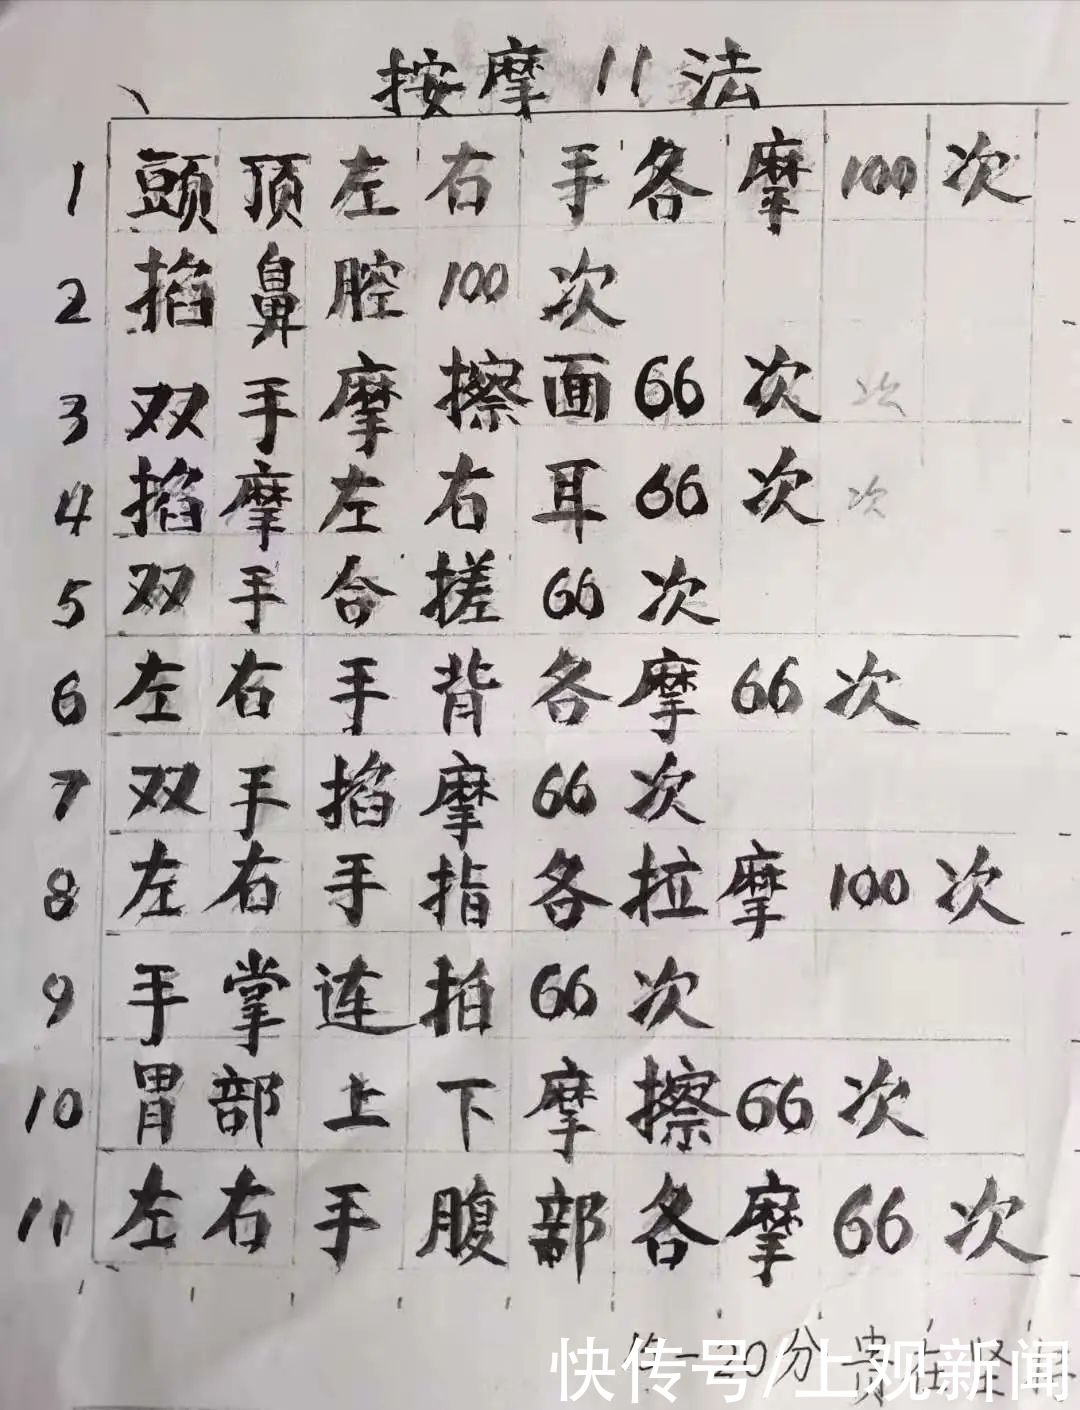 按摩11法
1 頭顶左右手各摩100次
2 掐鼻腔100次
3 双手摩擦面66次 次
4 掐摩左右耳66次 次
5 双手合搓66次
6 左右手背各摩66次
7 双手掐摩66次
8 左右手指各拉摩100次
9 手掌连拍66次
10 胃部上下摩擦66次
11 左右手腹部各摩66次
20分 贵在坚
快传号/上观新闻